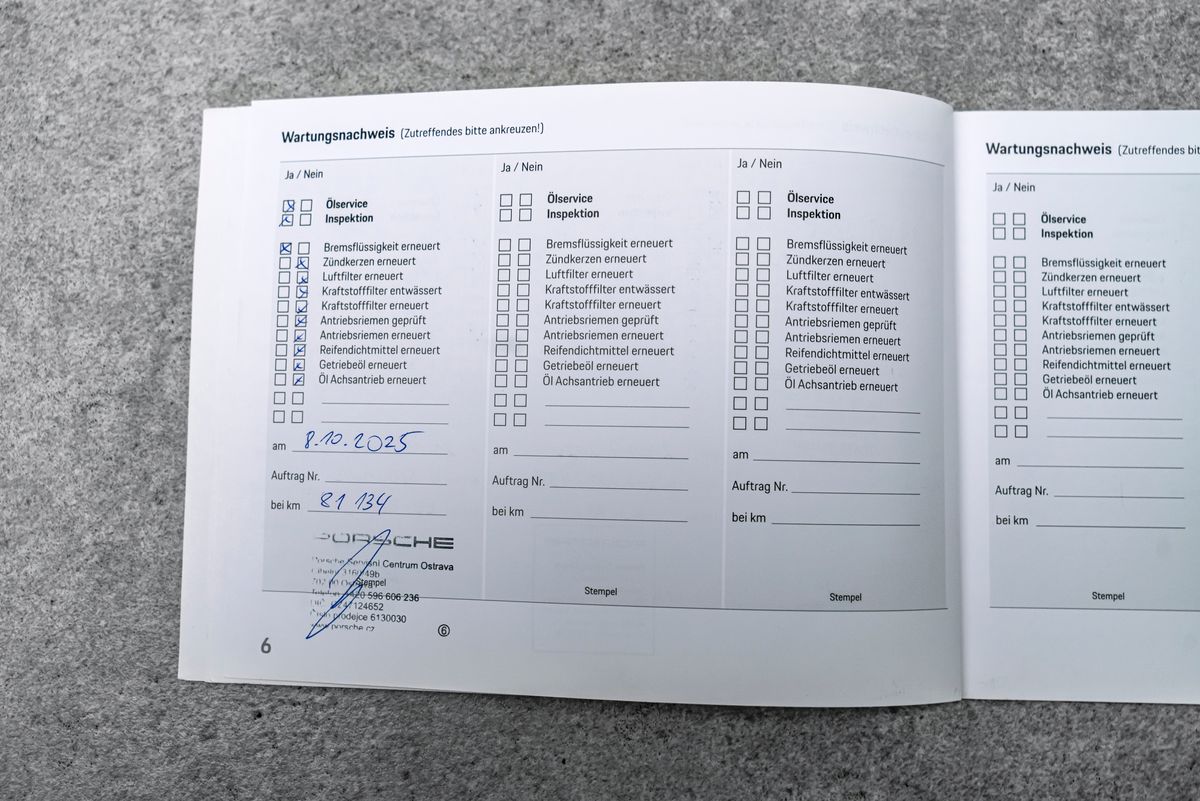 Wartungsnachweis (Zutreffendes bitte ankreuzen!)
Ja / Nein
Ölservice
Inspektion
Bremsflüssigkeit erneuert
Zündkerzen erneuert
Luftfilter erneuert
Kraftstofffilter entwässert
Kraftstofffilter erneuert
Antriebsriemen geprüft
Antriebsriemen erneuert
Reifendichtmittel erneuert
Getriebeöl erneuert
Öl Achsantrieb erneuert
am 8.10.2025
Auftrag Nr.
bei km 81 134
PORSCHE
Porsche Centrum Ostrava
Stempel
596 606 236
prodejce 6130030
porsche.cz
6
6
Ja / Nein
Ölservice
Inspektion
Bremsflüssigkeit erneuert
Zündkerzen erneuert
Luftfilter erneuert
Kraftstofffilter entwässert
Kraftstofffilter erneuert
Antriebsriemen geprüft
Antriebsriemen erneuert
Reifendichtmittel erneuert
Getriebeöl erneuert
Öl Achsantrieb erneuert
am
Auftrag Nr.
bei km
Stempel
Ja / Nein
Ölservice
Inspektion
Bremsflüssigkeit erneuert
Zündkerzen erneuert
Luftfilter erneuert
Kraftstofffilter entwässert
Kraftstofffilter erneuert
Antriebsriemen geprüft
Antriebsriemen erneuert
Reifendichtmittel erneuert
Getriebeöl erneuert
Öl Achsantrieb erneuert
am
Auftrag Nr.
bei km
Stempel
Wartungsnachweis (Zutreffendes bit
Ja / Nein
Ölservice
Inspektion
Bremsflüssigkeit erneuert
Zündkerzen erneuert
Luftfilter erneuert
Kraftstofffilter entwässert
Kraftstofffilter erneuert
Antriebsriemen geprüft
Antriebsriemen erneuert
Reifendichtmittel erneuert
Getriebeöl erneuert
Öl Achsantrieb erneuert
am
Auftrag Nr.
bei km
Stempel